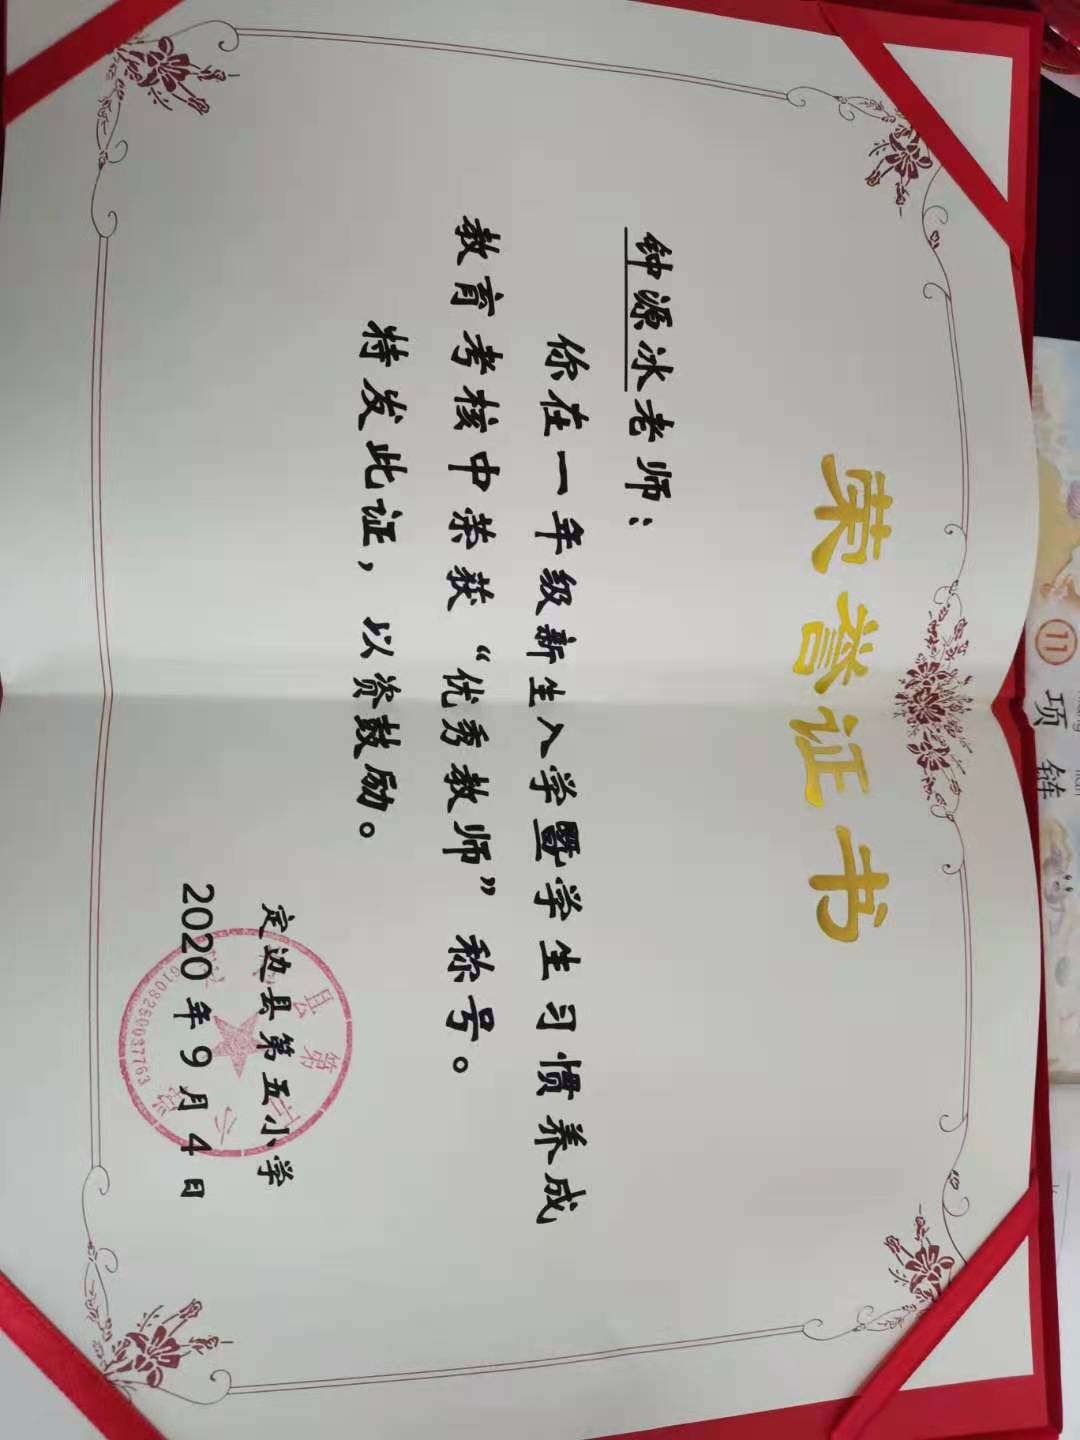 荣誉证书
钟源冰老师：
你在一年级新生入学暨学生习惯养成
教育考核中荣获“优秀教师”称号。
特发此证，以资鼓励。
定边县第五小学
2020年9月4日
6108250037763
11
项链